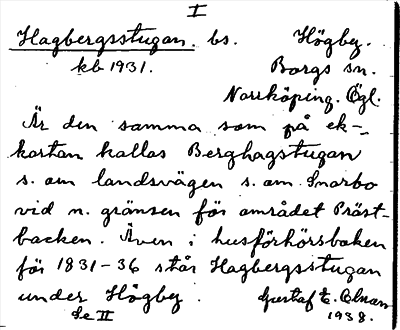 I
Hagbergsstugan. bs. Högby.
kb 1931. Borgs sn.
Norrköping. Ögl.
Är den samma som på ek-
kartan kallas Berghagstugan
s. om landsvägen s. om Snarbo
vid n. gränsen för området Präst-
backen. Även i husförhörsboken
för 1831-36 står Hagbergsstugan
under Högby. Gustaf E.
Se II 1938.